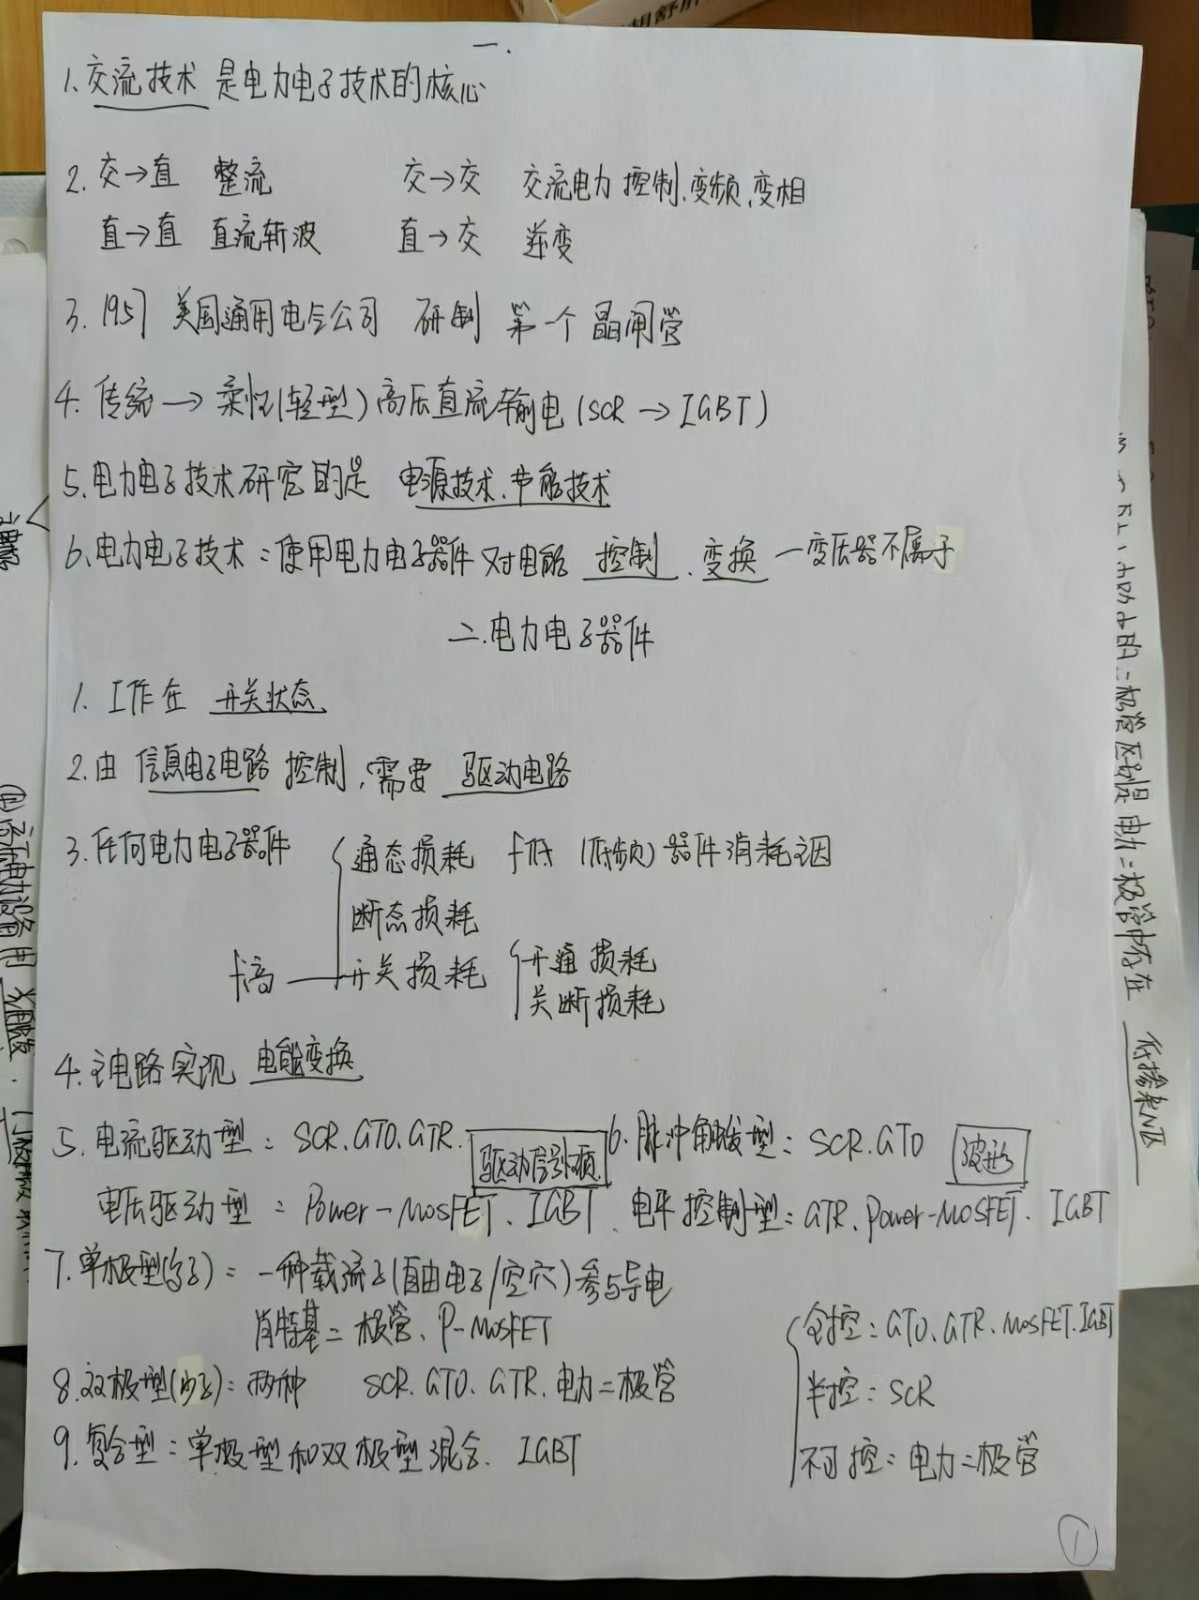 一.
1.交流技术 是电力电子技术的核心
2. 交→直 整流 交→交 交流电力控制、变频、变相
直→直 直流斩波 直→交 逆变
3. 1957 美国通用电气公司 研制 第一个晶闸管
4. 传统 → 柔性(轻型)高压直流输电(SCR → IGBT)
5.电力电子技术研究的是 电源技术、节能技术
6.电力电子技术：使用电力电子器件对电能 控制、变换 — 变压器不属于
二.电力电子器件
1. 工作在 开关状态
2.由 信息电子电路 控制，需要 驱动电路
3.任何电力电子器件 通态损耗 f低 (低频) 器件消耗主因
断态损耗
f高 — 开关损耗 开通损耗
关断损耗
4.主电路实现 电能变换
5. 电流驱动型：SCR.GTO.GTR. 驱动信号 6. 脉冲触发型：SCR.GTO 波形
电压驱动型：Power-MOSFET、IGBT 电平控制型：GTR、Power-MOSFET. IGBT
7. 单极型(多子)：一种载流子(自由电子/空穴)参与导电
肖特基二极管、P-MOSFET
8.双极型(少子)：两种 SCR.GTO.GTR.电力二极管
9.复合型：单极型和双极型混合. IGBT
全控：GTO、GTR、MOSFET.IGBT
半控：SCR
不可控：电力二极管
1
二极管区别是电力二极管中存在
低掺杂N区
高压电力设备用